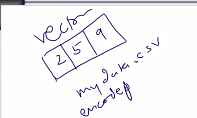 vector
2 5 9
my data.csv
encoded